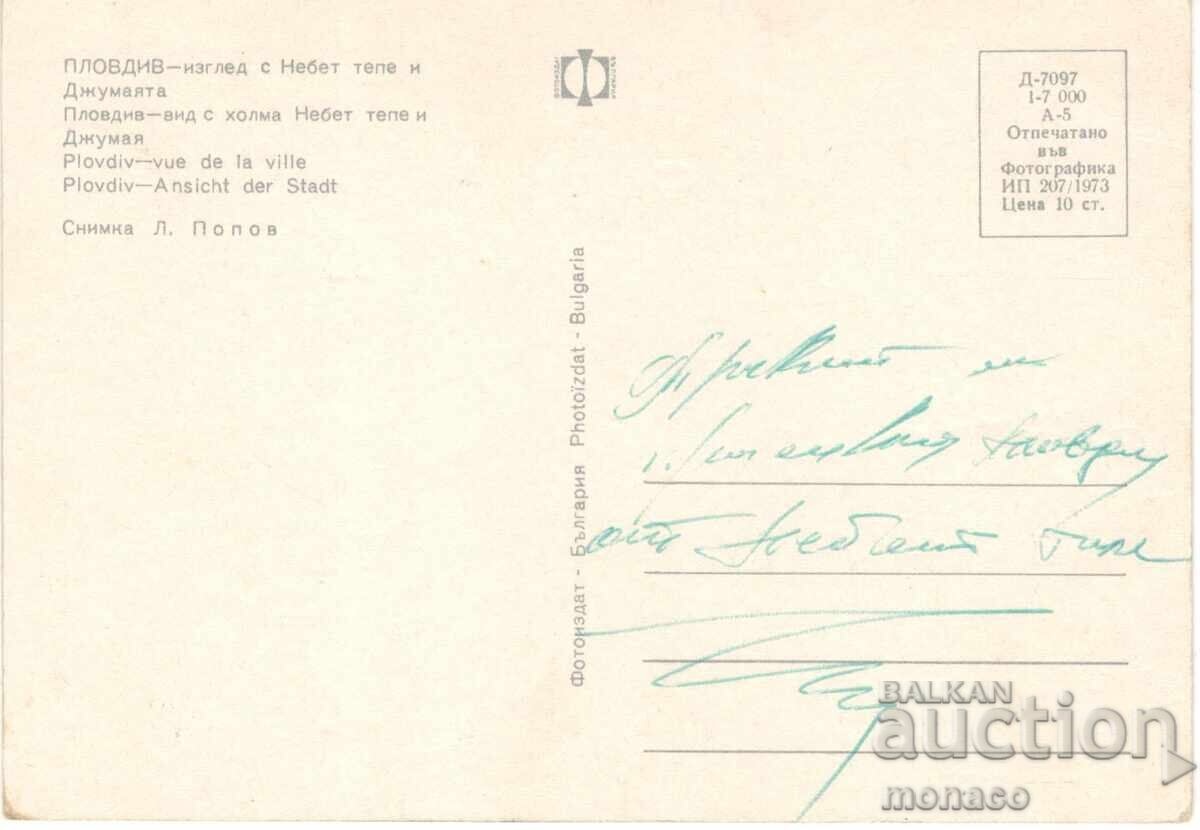 ПЛОВДИВ—изглед с Небет тепе и
Джумаята
Пловдив—вид с холма Небет тепе и
Джумая
Plovdiv—vue de la ville
Plovdiv—Ansicht der Stadt
Снимка Л. Попов
Фотоиздат - България Photoïzdat - Bulgaria
Д-7097
1-7 000
А-5
Отпечатано
във
Фотографика
ИП 207/1973
Цена 10 ст.
от Небет
BALKAN
auction
monaco